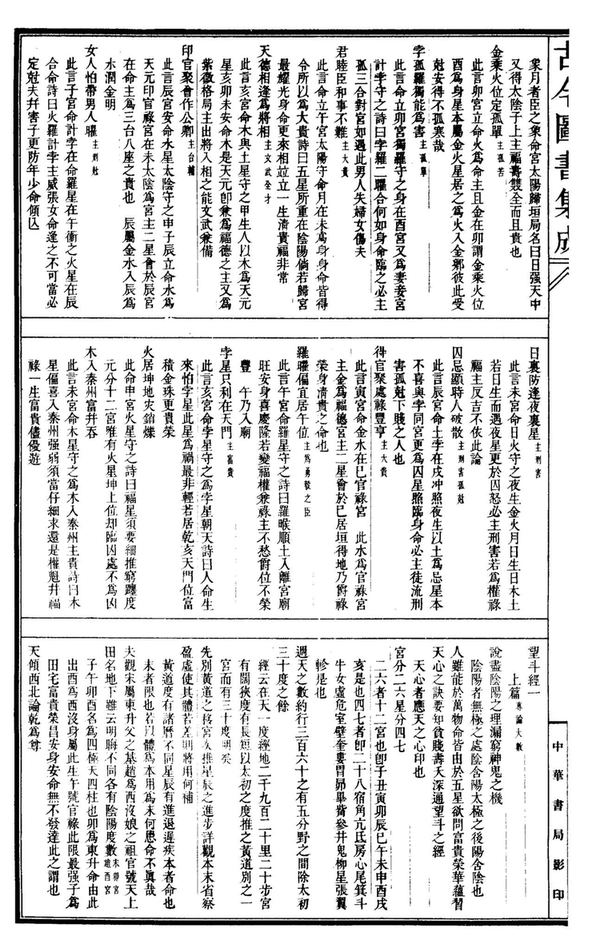 古今圖書集成
中華書局影印
象月者臣之象命宮太陽歸垣局名曰日强天中
又得太陰子上主福壽雙全而且貴也
金乘火位定孤單 主孤苦
此言卯宮立命火爲命主且金在卯謂金乘火位
酉爲身星本屬金火星居之爲火入金鄉彼此受
尅安得不孤寒哉
孛孤羅獨能爲害 主孤單
此言命立卯宮獨羅守之身在酉宮又爲妻妾宮
計孛守之詩曰孛羅二曜合何如身命臨之必主
孤三合對宮如遇此男人失婦女傷夫
君睦臣和事不難 主大貴
此言命立午宮太陽守命月在未爲身身命皆得
令所以爲大貴詩曰五星所重在陰陽倘若歸宮
最耀光身命更來相竝立一生淸貴福非常
天德相逢爲將相 主文武全才
此言亥宮命木與土星守之甲生人以木爲天元
星亥卯未安命木是天元卽兼爲福德之主又爲
紫微格局主出將入相之能文武兼備
印官聚會作公卿 主台輔
此言辰宮安命水星太陰守之申子辰立命水爲
天元印官祿宮在未太陰爲宮主二星會於辰宮
在命主爲三台八座之貴也 辰屬金水入辰爲
水潤金明
女人怕帶男人曜 主刑尅
此言子宮命計孛在命羅星在午衝之火星在辰
合命詩曰火羅計孛主威張女命逢之不可當必
定尅夫幷害子更防年少命傾亾
日裏防逢夜裏星 主刑害
此言未宮命日火守之夜生金火月日生日木土
若日生而遇夜星更於囚怒必主刑害若爲權祿
福主反吉不依此論
囚忌顯時人破散 主刑害孤尅
此言辰宮命土孛在戌冲照夜生以土爲忌星本
不喜與孛同宮更爲囚星照臨身命必主徒流刑
害孤尅下賤之人也
得官聚處祿豐亨 主大貴
此言寅宮命金水在巳官祿宮 此水爲官祿宮
主金爲福德宮主二星會於巳居垣得地乃爵祿
榮身淸貴之命也
羅曜偏宜居午位 主為勇敢之臣
此言午宮命羅星守之詩曰羅㬋順土入離宮廟
旺安身喜慶隆若變福權兼祿主不愁爵位不榮
豐 午乃入廟
孛星只利在天門 主富貴
此言亥宮命孛星守之爲孛星朝天詩曰人命生
來怕孛星此星爲禍最非輕若居乾亥天門位富
積金珠更貴榮
火居坤地災銷爍
此命申宮火星守之詩曰福星須要細推窮躔度
元分十二宮唯有火星坤上位却臨囚處不爲凶
木入秦州富幷吞
此言未宮命木星守之爲木入秦州主貴詩曰木
星偏喜入秦州强弱須當仔細求還是權魁幷福
祿一生富貴儘優遊
望斗經一
上篇 專論大數
說盡陰陽之理漏窮神鬼之機
陰陽者無極之處陰含陽太極之後陽含陰也
人雖能於萬物命皆由於五星欲問富貴榮華蘊習
天心之訣要知貧賤壽夭深通望斗之經
天心者應天之心印也
宮分二六星分四七
二六者十二宮也卽子丑寅卯辰巳午未申酉戌
亥是也四七者卽二十八宿角亢氐房心尾箕斗
牛女虛危室壁奎婁胃昴畢觜參井鬼柳星張翼
軫是也
週天之數約行三百六十之有五分野之間除太初
三十度之餘
經云在天一度經地二千九百二十里二十步宮
有闊狹度有長短以太初之度推之黃道別之一
宮而有三十度明矣
先別黃道之移宮次推星辰之進步詳觀本末省察
盈虛使其體若差明將用何補
黃道度有諸曆不同星辰有進退遲疾本者命也
末者限也若以體爲本用爲末何愚命不眞哉
夫觀宋屬東升父之基趙爲西沒娘之祖官號天上
田名地下雖云明晦不同各有陰陽度數
子午卯酉名爲四極天四柱也卯爲東升命由此
出酉爲西沒身屬此生午號官祿此限最强子爲
田宅富貴榮昌安身安命無不發達此之謂也
天傾西北論乾爲尊